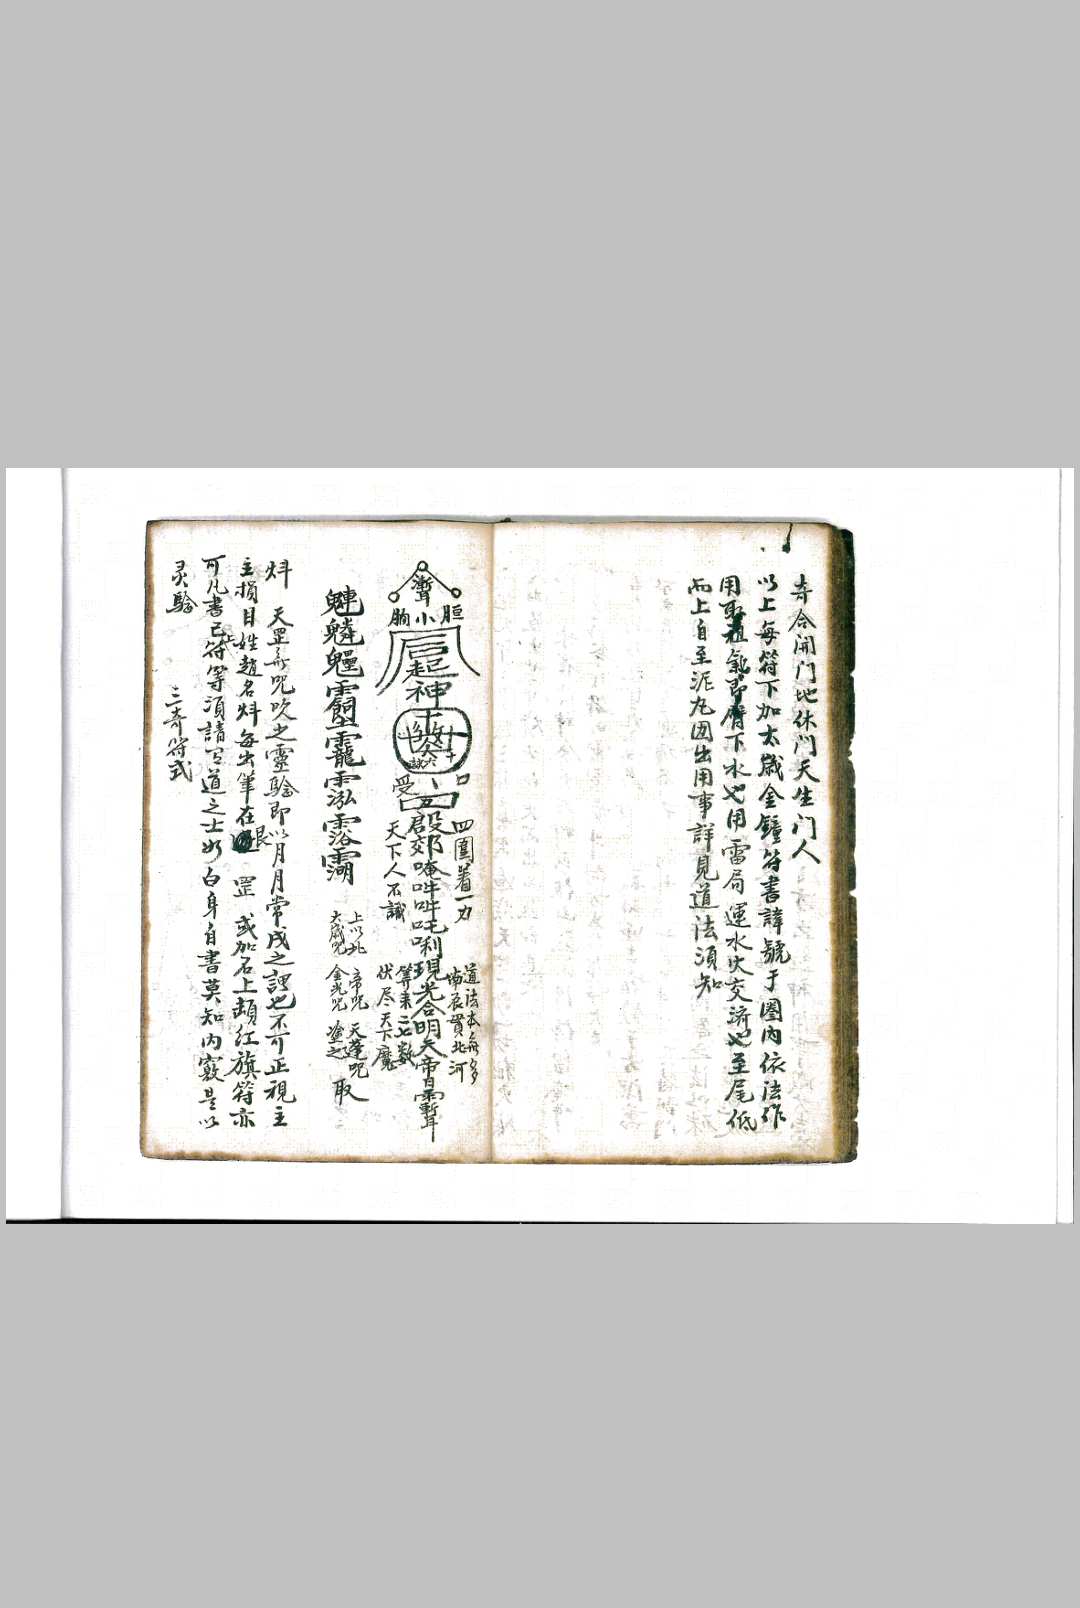 奇合開门地休门天生门人
以上每符下加太歲金鐘符書諱號于圈內依法作
用取祖氣即臍下水也用雷局運水火交济也至尾低
而上自至泥丸因出用事詳見道法須知
胸 小 胆
起
神
受
四圍着一力
天下人不識
唵吽吽吒唎現光合明天帝
道法本無多
南辰貫北河
筭来三七數
伏尽天下魔
上以北帝咒天蓬咒
太歲咒金光咒塗之
取
天罡 咒吹之靈驗即以月月常戌之諤也不可正視主
主損目姓趙名 每出筆在
艮
罡 或加石上 紅旗符亦
可凡書已上符等須請 道之士妙白身自書莫知内竅是以
灵驗
三奇符式